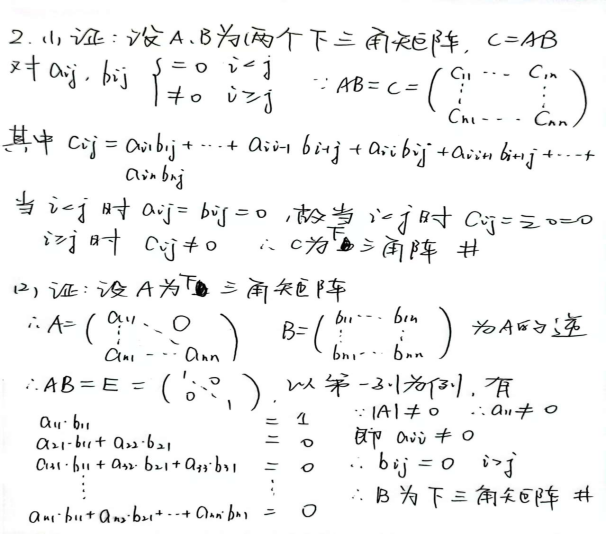 2. (1) 证: 设 A、B 为两个下三角矩阵, C=AB
对 aij, bij { =0 i<j ≠0 i≥j ∵ AB=C=( c11 … c1n ⋮ ⋮ cn1 … cnn )
其中 cij = ai1b1j + … + aii-1 bi-1j + aii bij + aii+1 bi+1j + … +
ain bnj
当 i<j 时 aij = bij = 0, 故当 i<j 时 Cij = Σ0 = 0
i≥j 时 Cij ≠ 0 ∴ C为下三角阵 #
(2) 证: 设 A 为下三角矩阵
∴ A=( a11 ⋱ 0 ⋮ an1 … ann ) B=( b11 … b1n ⋮ ⋮ bn1 … bnn ) 为A的逆
∴ AB = E = ( 1 0 ⋱ 0 1 ), 以第一列为例, 有
a11·b11 = 1 ∵ |A| ≠ 0 ∴ a11 ≠ 0
a21·b11 + a22·b21 = 0 即 aii ≠ 0
a31·b11 + a32·b21 + a33·b31 = 0 ∴ bij = 0 i>j
⋮ ⋮
an1·b11 + an2·b21 + … + ann·bn1 = 0 ∴ B为下三角矩阵 #